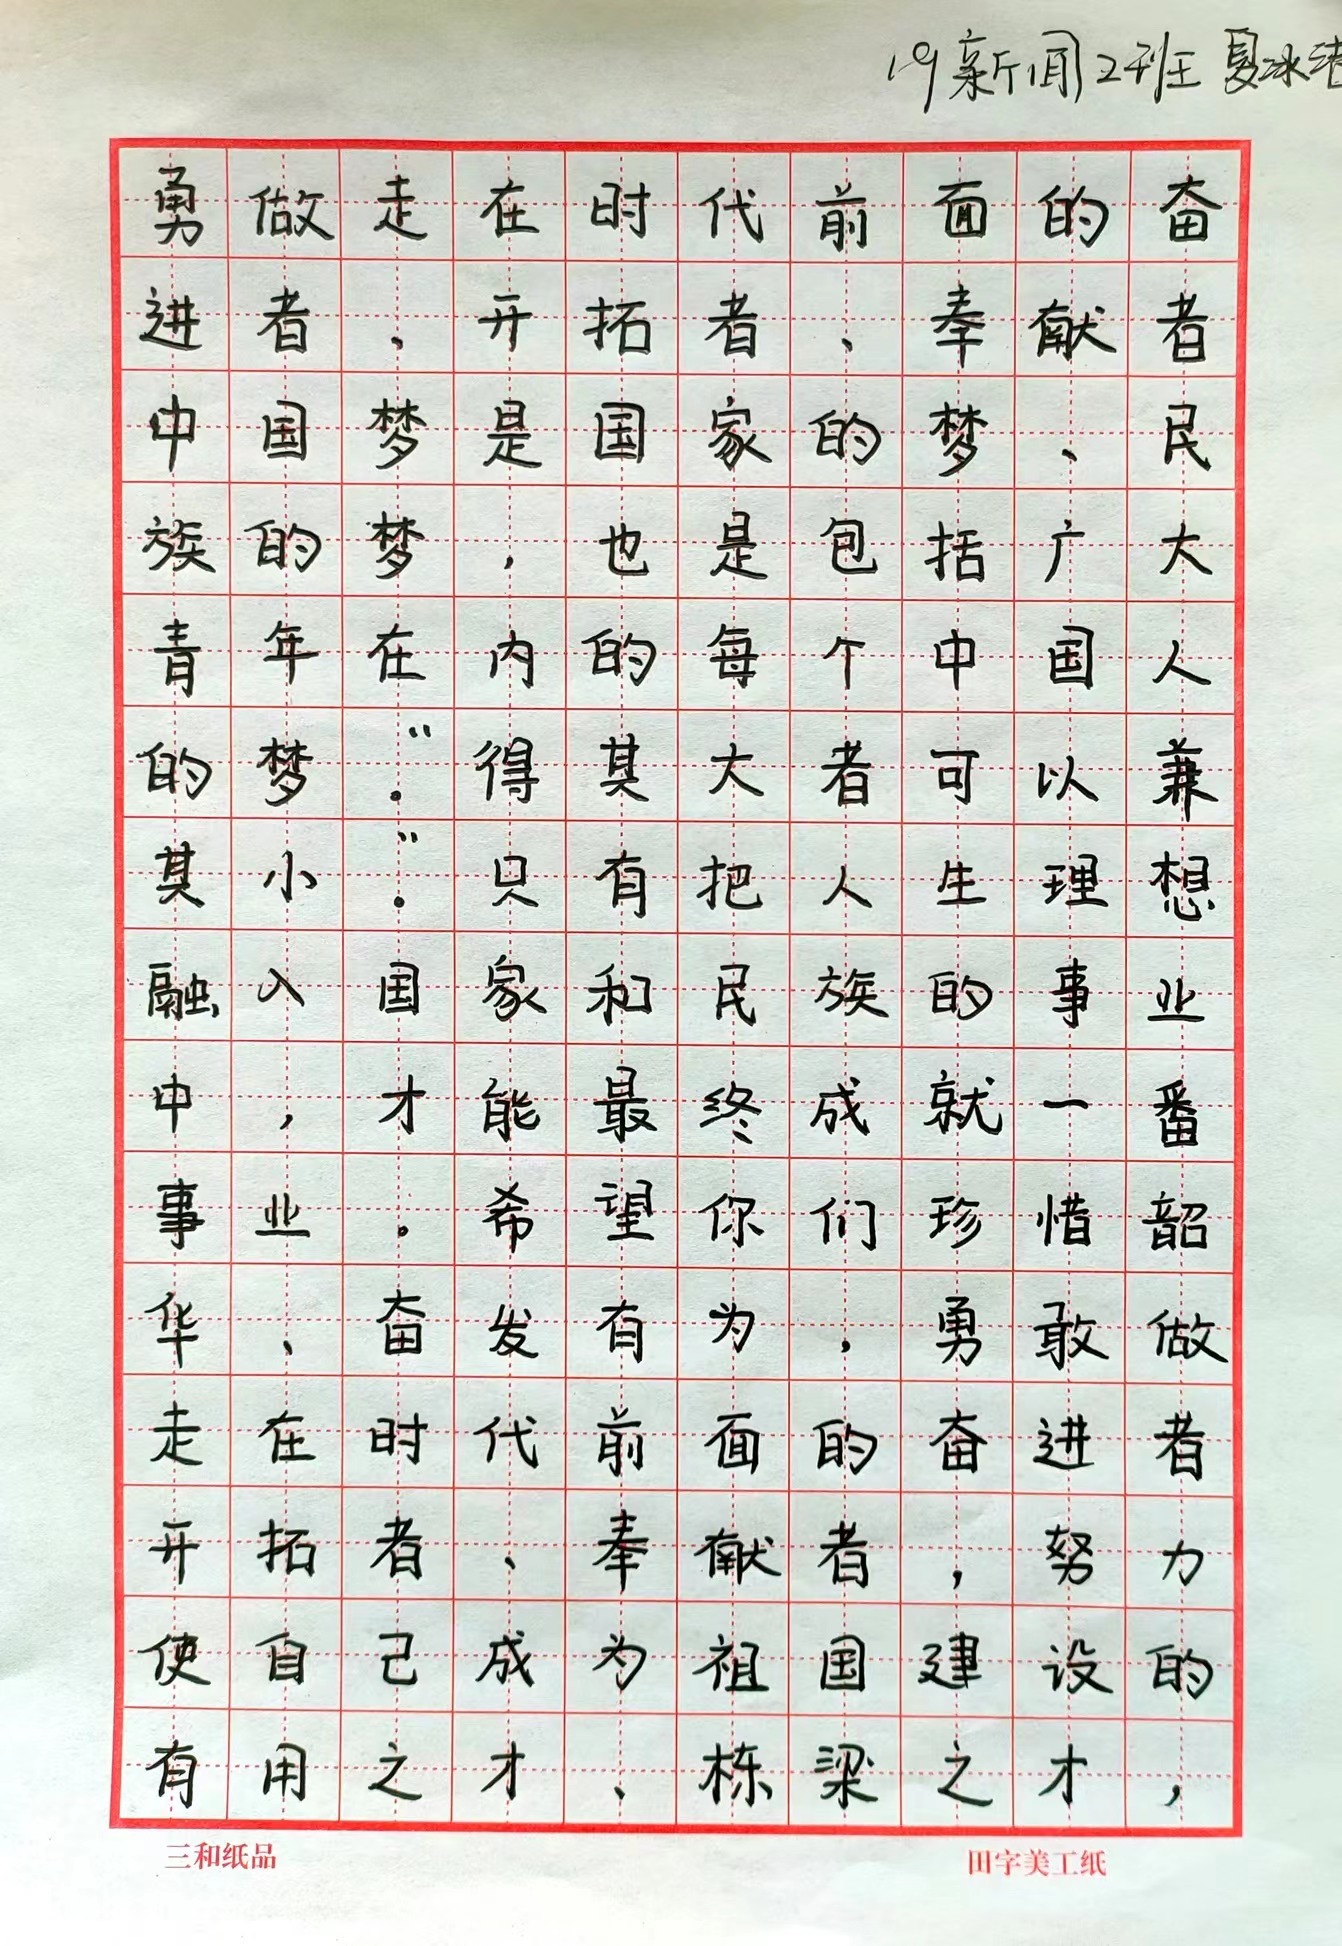 19新闻2班 夏冰洁
勇做走在时代前面的奋
进者、开拓者、奉献者
中国梦是国家的梦、民
族的梦，也是包括广大
青年在内的每个中国人
的梦。“得其大者可以兼
其小”。只有把人生理想
融入国家和民族的事业
中，才能最终成就一番
事业。希望你们珍惜韶
华、奋发有为，勇敢做
走在时代前面的奋进者
开拓者、奉献者，努力
使自己成为祖国建设的
有用之才、栋梁之才，
三和纸品
田字美工纸